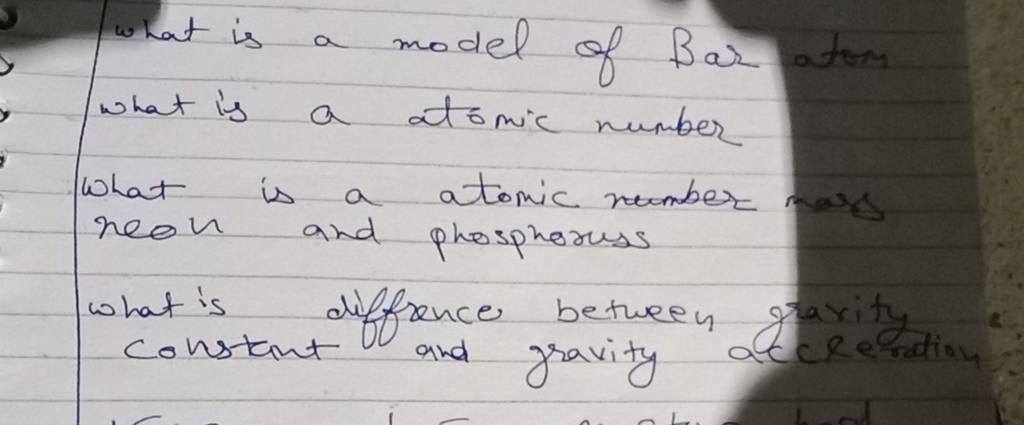 what is a model of Bar atom
what is a atomic number
what is a atomic number mass
neon and phosphoruss
what is diffrence between gravity
constant and gravity accleration